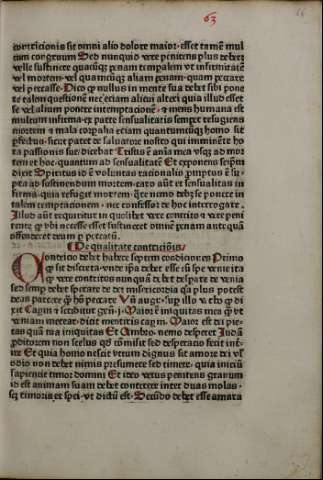 63
contricionis sit omni alio dolore maior· esset tamē mul
tum congruum Sed nunquid vere penitens plus debet
velle sustinere quacūqꝫ penam tempalem vt infirmitatē
vel mortem· vel quamcūqꝫ aliam penam· quam peccare
vel peccasse· Dico ꝙ nullus in mente sua debet sibi pone
te talem questionē nec etiam alicui alteri quia illud esset
se vel alium ponere intemptacionē· ⁊ mens humana est
multum infirma· ex parte sensualitatis semper refugiens
mortem ⁊ mala corpalia etiam quantumcūqꝫ homo sit
pfectus· sicut patet de saluatore nostro qui imminēte ho
ra passionis sue dicebat Tristis ē anīa mea vsqꝫ ad mor
tem et hoc· quantum ad sensualitatē Et exponens seipm̄
dixit Spiritus id ē voluntas racionalis pmptus ē su·
pta ad sustinendum mortem· caro aūt et sensualitas in
firma· quia refugit mortem· g̅ nemo debꝫ se ponere in
talem temptacionem· nec confessor de hoc interrogare·
Illud aūt requiritur in quolibet vere contrito ⁊ vere peni
tente ꝙ vbi necesse esset sustineret omnē penam ante quā
offenderet deum p peccatū·
De qualitate contricionis
Contricio debet habere septem condiciones Primo
ꝙ sit discreta· vnde ipa debet esse cū spe venie ita
ꝙ vere contritus nunquā debet desperare de venia
sed semp debet sperare de dei misericordia q̄ plus potest
deus parcere ꝙ hō peccare Vn̄ augꝰ· sup illo vbo ꝙ di
xit Caym ⁊ scribitur gen̄· Maior ē iniquitas mea ꝙ vt
veniam merear· dicit mentiris caym· Maior est dei pie·
tas quā tua iniquitas Et Ambro· nemo desperet Iudā
pditorem non scelus qd cōmisit sed desperacio fecit int̄
rire Et quia homo nescit vtrum dignus sit amore dei vl
odio non debet nimis presumere sed timere· quia iniciū
sapiencie timor domini Et ideo verus penitens granum
id est animam suam debet conterere inter duas molas·
sqꝫ timoris et spei· vt dictū est· Secūdo debet esse amara